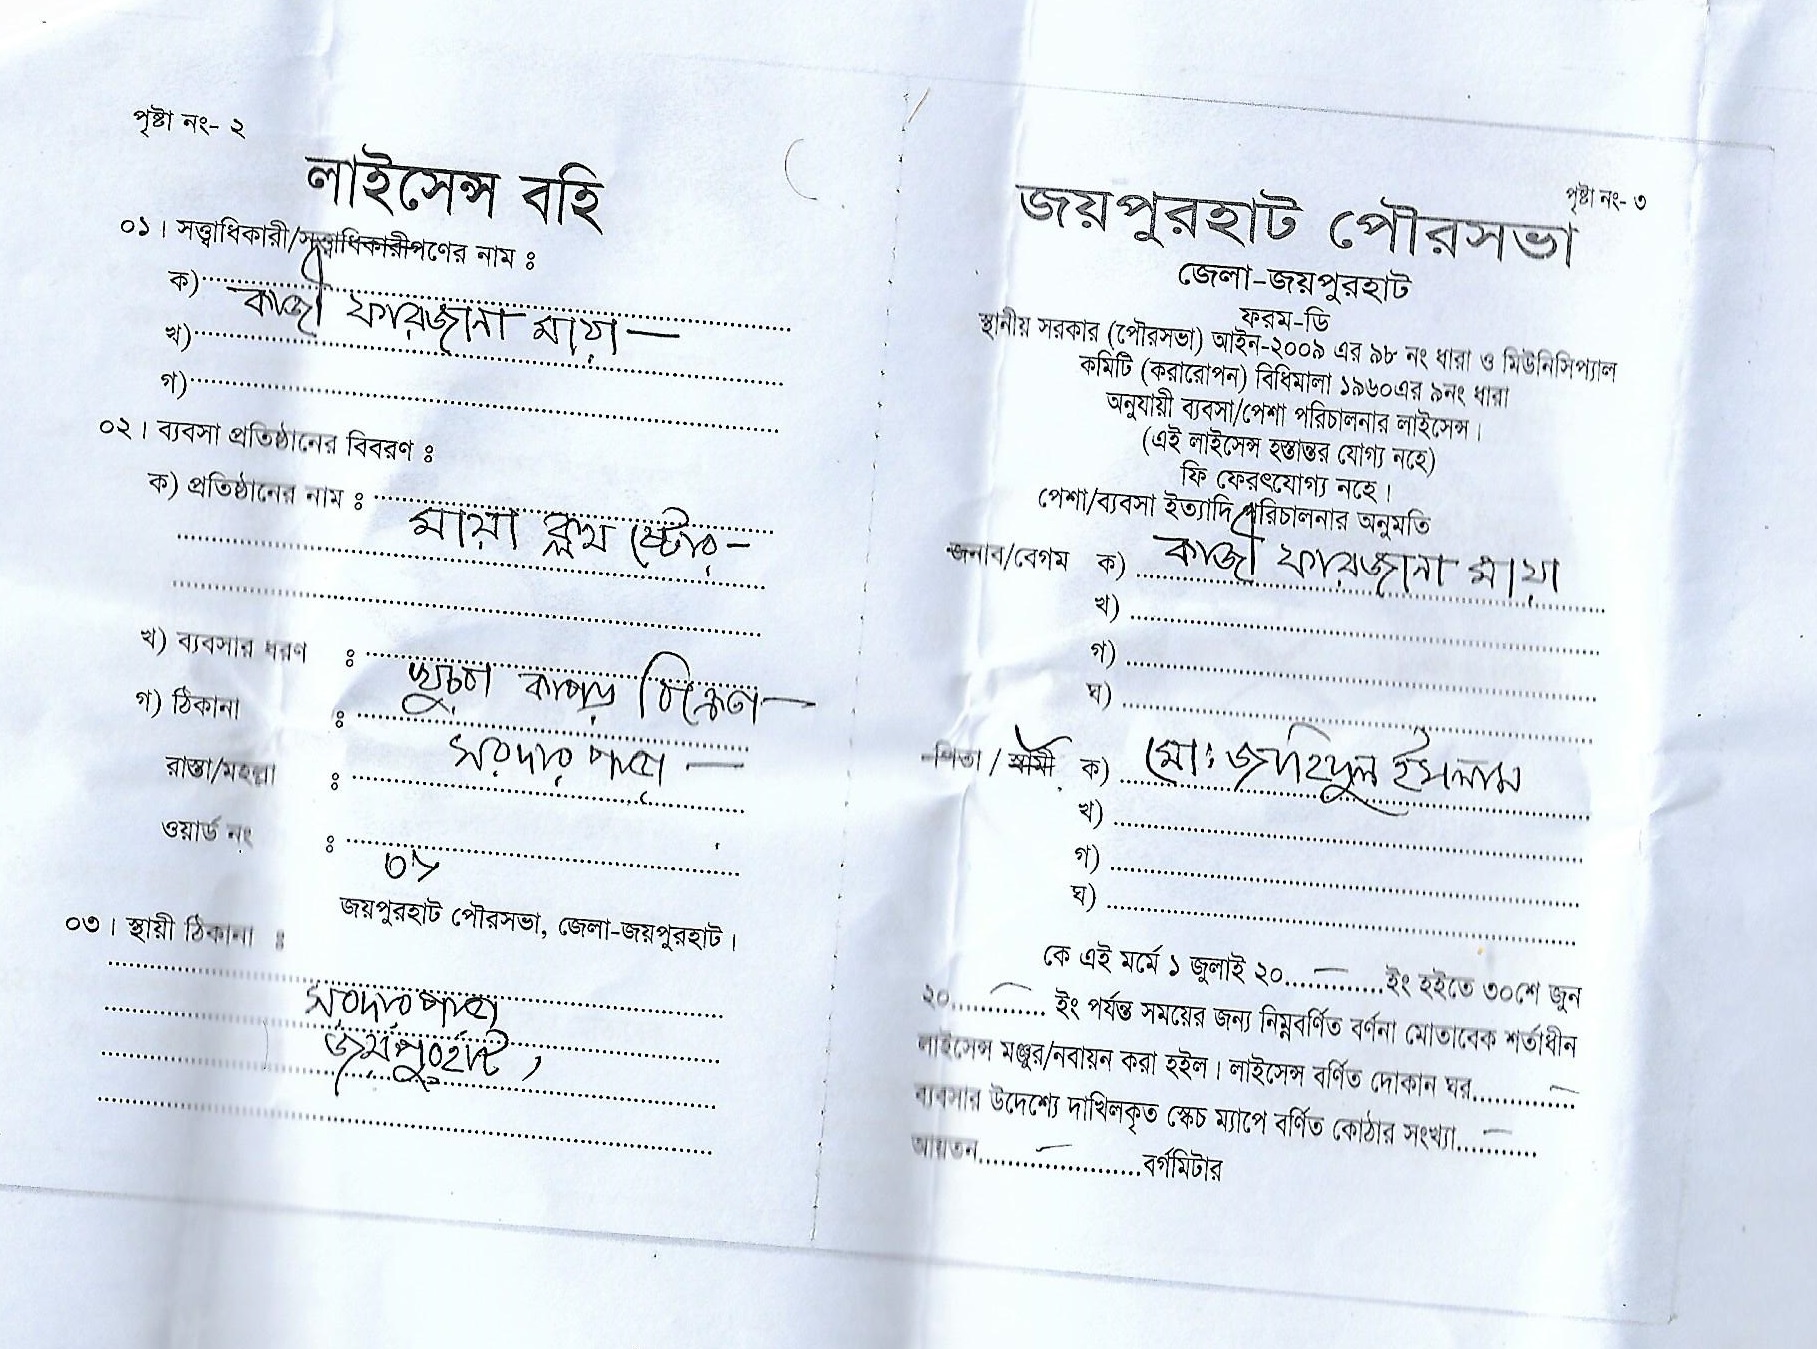 পৃষ্টা নং- ২
লাইসেন্স বহি
০১। সত্ত্বাধিকারী/সত্ত্বাধিকারীগণের নাম ঃ
ক) কাজী ফারজানা মায়া —
খ)
গ)
০২। ব্যবসা প্রতিষ্ঠানের বিবরণ ঃ
ক) প্রতিষ্ঠানের নাম ঃ মায়া ক্লথ ষ্টোর —
খ) ব্যবসার ধরণ ঃ খুচরা কাপড় বিক্রেতা —
গ) ঠিকানা ঃ সরদার পাড়া —
রাস্তা/মহল্লা ঃ
ওয়ার্ড নং ঃ ০৮
জয়পুরহাট পৌরসভা, জেলা-জয়পুরহাট।
০৩। স্থায়ী ঠিকানা ঃ
সরদার পাড়া
জয়পুরহাট,
পৃষ্টা নং- ৩
জয়পুরহাট পৌরসভা
জেলা-জয়পুরহাট
ফরম-ডি
স্থানীয় সরকার (পৌরসভা) আইন-২০০৯ এর ৯৮ নং ধারা ও মিউনিসিপ্যাল
কমিটি (করারোপন) বিধিমালা ১৯৬০এর ৯নং ধারা
অনুযায়ী ব্যবসা/পেশা পরিচালনার লাইসেন্স।
(এই লাইসেন্স হস্তান্তর যোগ্য নহে)
ফি ফেরৎযোগ্য নহে।
পেশা/ব্যবসা ইত্যাদি পরিচালনার অনুমতি
জনাব/বেগম ক) কাজী ফারজানা মায়া
খ)
গ)
ঘ)
পিতা / স্বামী ক) মো: জাহিদুল ইসলাম
খ)
গ)
ঘ)
কে এই মর্মে ১ জুলাই ২০.............ইং হইতে ৩০শে জুন
২০............ ইং পর্যন্ত সময়ের জন্য নিম্নবর্ণিত বর্ণনা মোতাবেক শর্তাধীন
লাইসেন্স মঞ্জুর/নবায়ন করা হইল। লাইসেন্স বর্ণিত দোকান ঘর..............
ব্যবসার উদেশ্যে দাখিলকৃত স্কেচ ম্যাপে বর্ণিত কোঠার সংখ্যা...........
আয়তন.......................বর্গমিটার